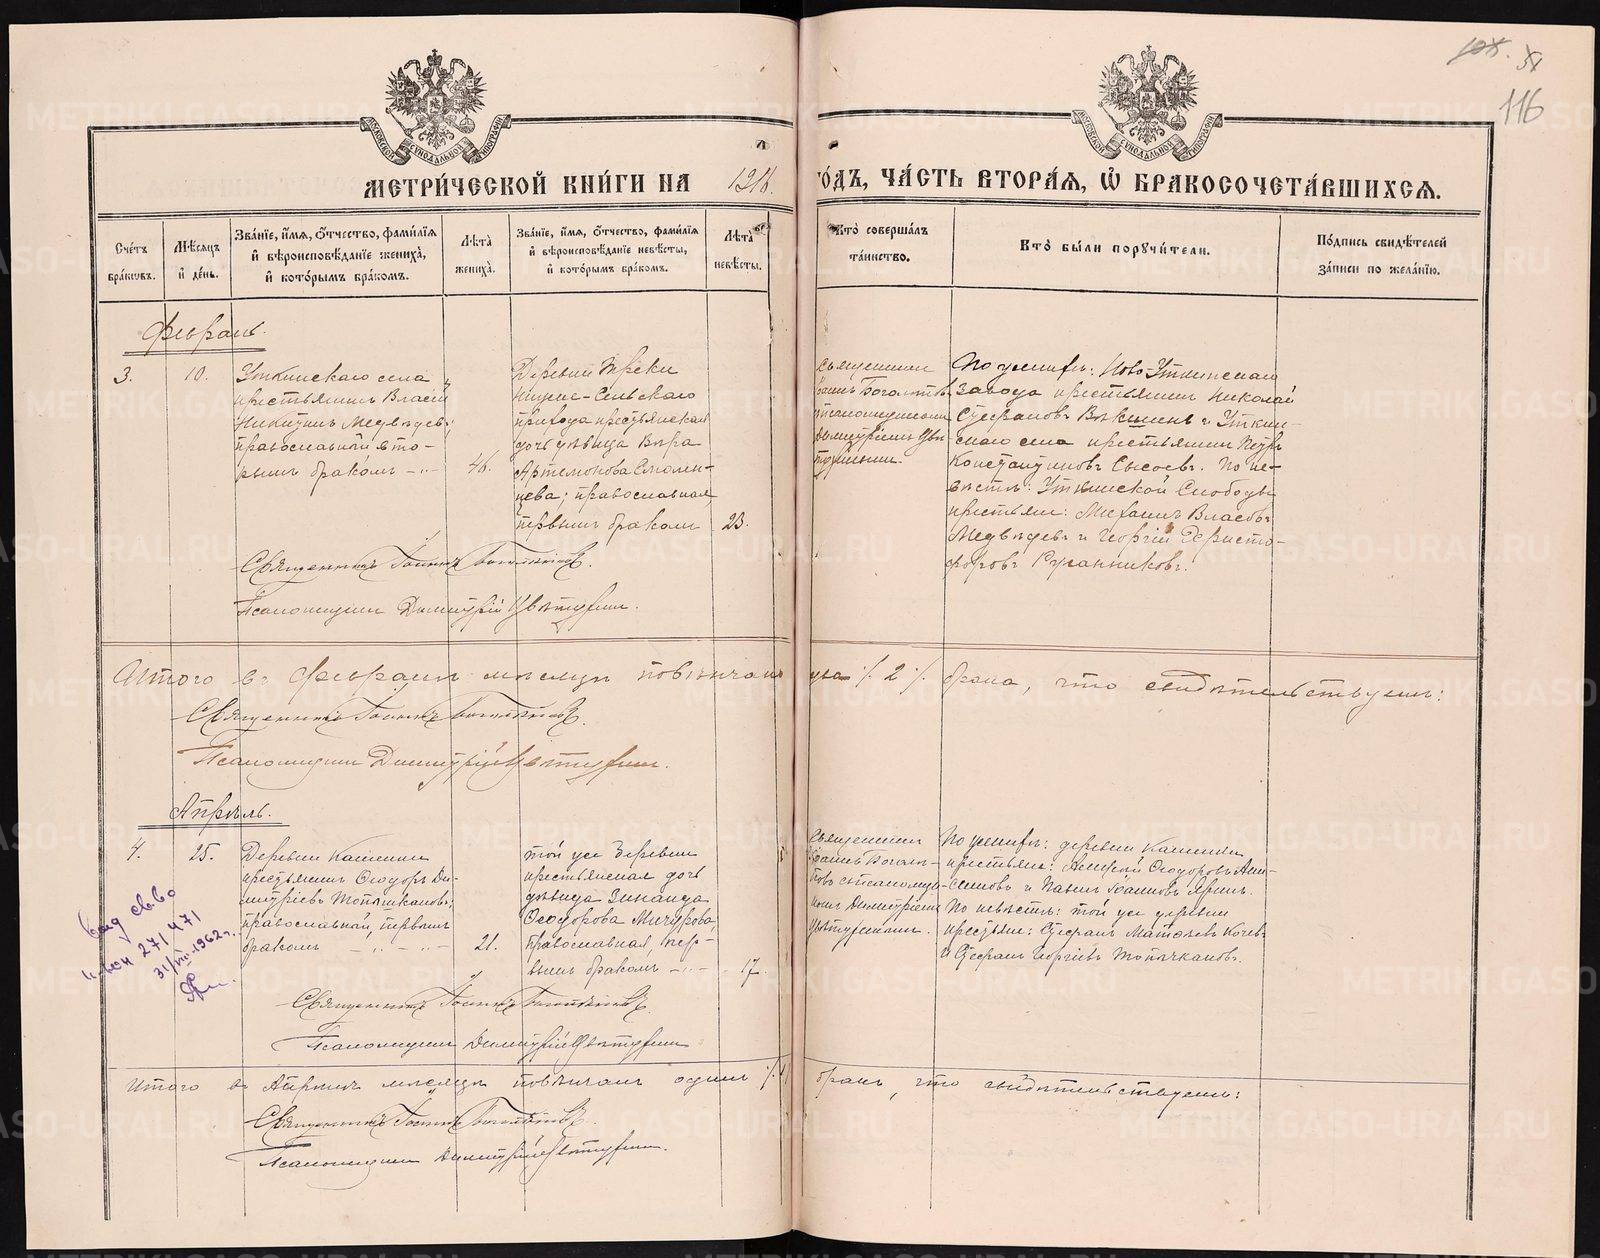 116
МОСКОВСКОЙ СУНОДАЛЬНОЙ ТИПОГРАФІИ
МОСКОВСКОЙ СУНОДАЛЬНОЙ ТИПОГРАФІИ
МЕТРИ́ЧЕСКОЙ КНИ́ГИ НА 1916. ГО́ДЪ, ЧА́СТЬ ВТОРА́Я, Ѡ БРАКОСОЧЕТА́ВШИХСЯ.
Сче́тъ бра́ковъ.
Мѣ́сяцъ и́ де́нь.
Зва́нїе, и́мя, ѻ́тчество, фами́лїя и́ вѣроисповѣ́данїе жениха̀, и́ кото́рымъ бра́комъ.
Лѣ́та жениха̀.
Зва́нїе, и́мя, ѻ́тчество, фами́лїя и́ вѣроисповѣ́данїе невѣ́сты, и́ кото́рымъ бра́комъ.
Лѣ́та невѣ́сты.
Кто̀ соверша́лъ та́инство.
Кто̀ бы́ли порꙋчи́тели.
По́дпись свидѣ́телей за́писи по жела́нїю.
Февраль.
3.
10.
Уткинскаго села
крестьянинъ Власій
Никитинъ Медвѣдевъ,
православный, вто-
рымъ бракомъ
46.
Деревни Треки
Сельскаго
прихода крестьянская
дочь дѣвица Вѣра
Артемонова Смолен-
цева; православная,
первымъ бракомъ
23.
Священникъ
Іоаннъ Богомо
псаломщикомъ
Димитріемъ Цвѣ
По женихѣ: Ново Уткинскаго
завода крестьянинъ Николай
Стефановъ Векшинъ и Уткин-
скаго села крестьянинъ Петръ
Константиновъ Сысоевъ. По не-
вѣстѣ: Уткинской Слободы
крестьяне: Михаилъ Власовъ
Медвѣдевъ и Георгій Феристо-
форовъ
Священникъ Іоаннъ
Псаломщикъ Димитрій
Итого въ Февралѣ мѣсяцѣ повѣнчано два ./. 2 ./. брака, что свидѣтельствуемъ:
Священникъ Іоаннъ
Псаломщикъ Димитрій
Апрѣль.
4.
25.
Деревни Каменки
крестьянинъ Ѳеодоръ Ди-
митріевъ Топычкановъ;
православный, первымъ
бракомъ
21.
той же деревни
крестьянская дочь
дѣвица Зинаида
Ѳеодорова Мичурова,
православная, пер-
вымъ бракомъ
17.
Священникъ
Іоаннъ
съ псаломщи-
комъ Димитріемъ
По женихѣ: деревни Каменки
крестьяне: Алексѣй Ѳеодоровъ
и Павелъ Іоанновъ Яринъ.
По невѣстѣ: той же деревни
крестьяне: Стефанъ Матвѣевъ
и Стефанъ Георгіевъ Топычкановъ.
Выд св-во
271471
31/VII-1962 г.
Священникъ Іоаннъ
Псаломщикъ Димитрій
Итого въ Апрѣлѣ мѣсяцѣ повѣнчанъ одинъ ./. 1 бракъ, что свидѣтельствуемъ:
Священникъ Іоаннъ
Псаломщикъ Димитрій
METRIKI.GASO-URAL.RU